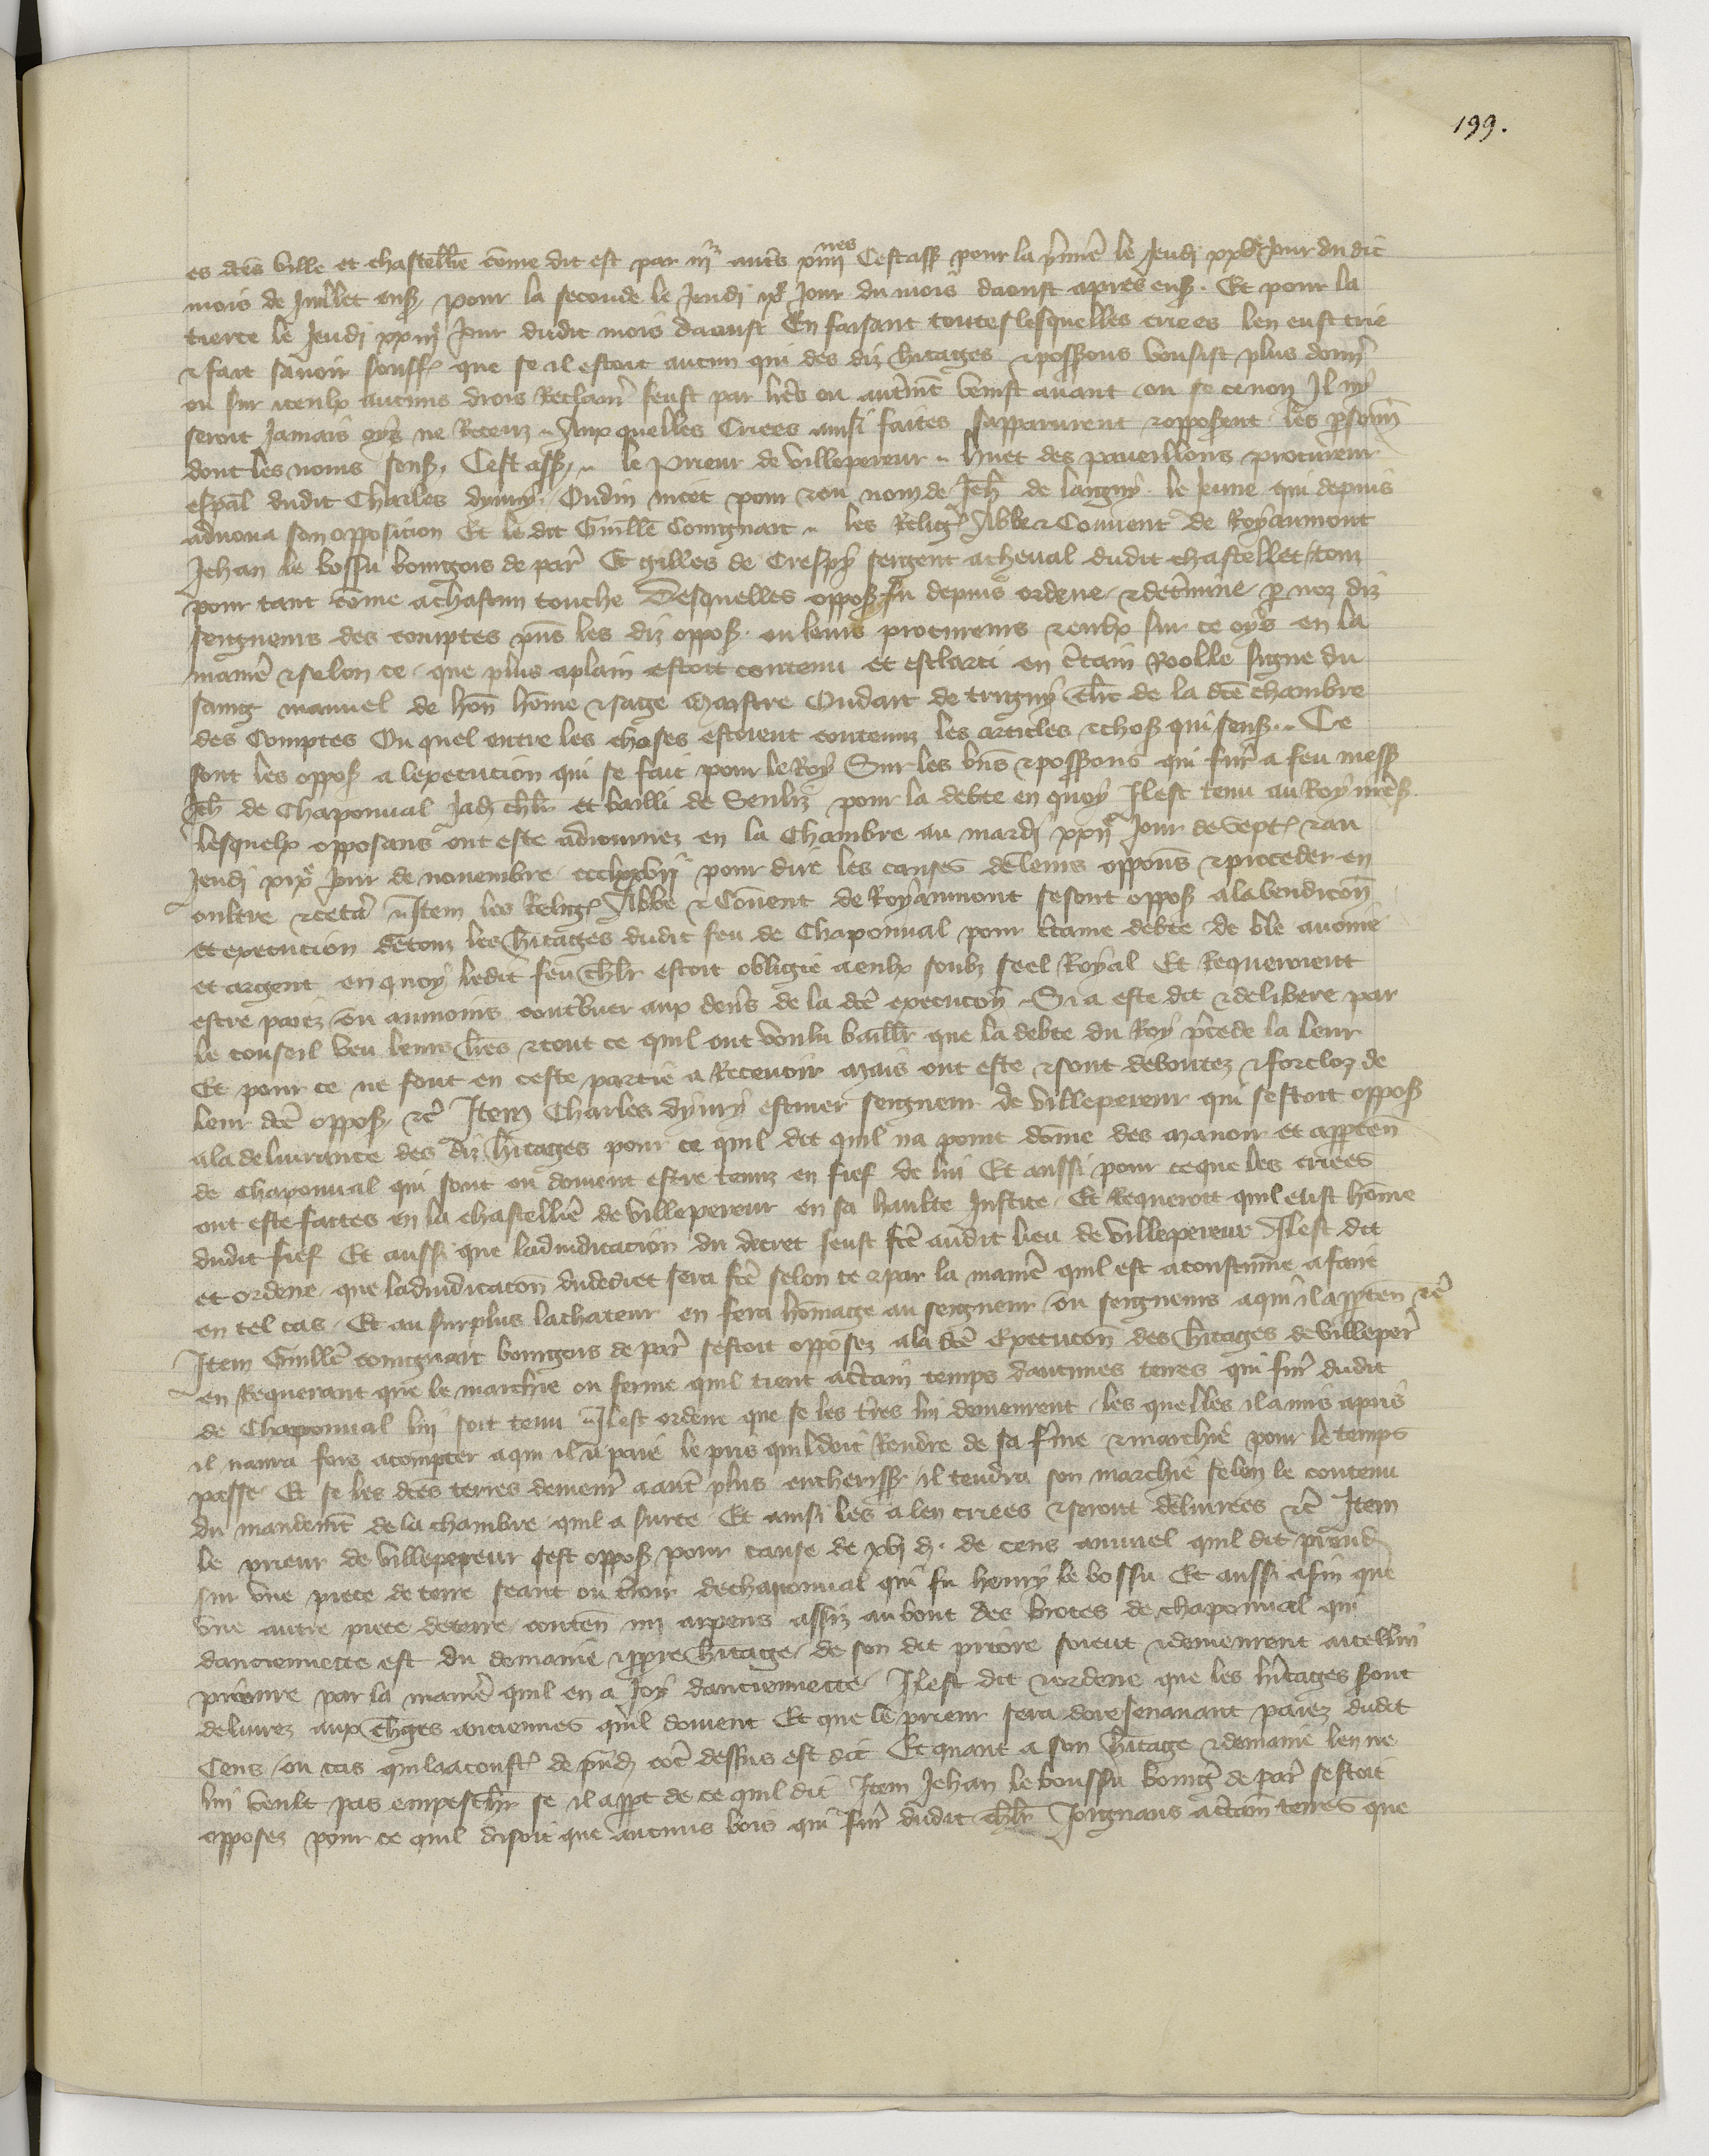 199.
es dces ville et chastellie come dit est par iij autres xiiij nes Cestass pour la pmiere le Jeudi xxve Jour du dit
mois de Juillet ens pour la seconde le Jeudi ixe Jour du mois daoust apres ens. Et pour la
tierce le Jeudi xxiije Jour dudit mois daoust En faisant toutes lesquelles criees len eust crie
& fait savoir souff que se il estoit aucun qui des diz hitages & possions vousist plus donner
ou sur iceulx aucuns drois Reclamer feust par lres ou autrement venist avant ou se ce non Il ny
seroit Jamais oys ne Receuz Aux quelles Criees ainsi faites sapparurent & opposerent les personnes
dont les noms sens, Cest ass, le Prieur de villepereur Huet des paveillons procureur
espal dudit Charles dyvry. Oudin incet pour & ou nom de Jeh de laigny le Jeune qui depuis
advoua son opposition Et le dit Guille Coingnart les Relig Abbe & Couvent de Royaumont
Jehan le bossu bourgois de par Et gilles de Crespy sergent acheval dudit chastellet touz
pour tant come achascun touche Desquelles oppos fu depuis ordene & determine p noz diz
seigneurs des comptes pns les diz oppos ou leurs procureurs & eulx sur ce oys en la
maniere & selon ce que plus aplain estoit contenu et esclarci en ctain Roolle signe du
saing manuel de hon home & sage Maistre Oudart de trigny clerc de la dce chambre
des Comptes Ou quel entre les choses estoient contenuz les articles & chos qui sens. Ce
sont les oppos a lexecution qui se fait pour le Roy Sur les bns & possions qui furent a feu mess
Jeh de Chaponval Jadis chlr et bailli de Senliz pour la debte en quoy Il est tenu au Roy nres
lesquelx opposans ont este adjournez en la Chambre au mardi xxije Jour de Sept & au
Jeudi xixe Jour de novembre ccclxxvij pour dire les causes de leurs oppons & proceder en
oultre & cetera Item les Relig Abbe & Couvent de Royaumont se sont oppos ala vendicon
et execution de touz les hitages dudit feu de Chaponval pour ctaine debte de ble avoine
et argent en quoy ledit feu chlr estoit obligie a eulx soubz seel Royal Et Requeroient
estre paiez ou aumoins contbuer aux deniers de la dce execucon Si a este dit & delibere par
le conseil veu leurs lres & tout ce quil ont voulu baillr que la debte du Roy pcede la leur
Et pour ce ne sont en ceste partie a Recevoir mais ont este & sont deboutez & forcloz de
leur dce oppos &c Item Charles dyvry escuier seigneur de villepereur qui sestoit oppos
ala delivrance des diz hitages pour ce quil dit quil na point dome des manoir et apprten
de Chaponval qui sont ou doivent estre tenuz en fief de lui Et aussi pour ce que les criees
ont este faites en la chastellie de villepereur en sa haulte Justice Et Requeroit quil eust home
dudit fief Et aussi que ladjudication du decret feust fce audit lieu de villepereur Il est dit
et ordene que ladjudicacon dudecret sera fce selon ce & par la maniere quil est acoustume afaire
en tel cas Et au surplus lachateur en fera homage au seigneur ou seigneurs aqui il apprten &c
Item Guille coingnart bourgois de par sestoit opposez ala dce Execucon des hitages de villeper
en Requerant que le marchie ou ferme quil tient actain temps daucunes terres qui furent dudit
de Chaponval lui soit tenu Il est ordene que se les tres lui demeurent les quelles il a mis apris
il naura fors acompter aqui il a paie le pris quil doit Rendre de sa fme & marchie pour le temps
passe Et se les dces terres demeurent a autre plus encheriss il tendra son marchie selon le contenu
du mandemt de la chambre quil a surce Et ainsi les a len criees & seront delivrees &c Item
le prieur de villepereur sest oppos pour cause de xvj d. de cens annuel quil dit prend
sur une piece de terre seant ou troir dechaponval qui fu henry le bossu Et aussi afin que
une autre piece deterre conten iiij arpens assiz au bout des brotes de chaponval qui
danciennete est du domaine ppre hitage de son dit priore soient & demeurent aicellui
prieure par la maniere quil en a Joy danciennete Il est dit & ordene que les hitages sont
delivrez aux chges anciennes quil doivent Et que le prieur sera doresenavant paiez dudit
Cens ou cas quil a acoust de pnd coe dessus est dit Et quant a son hitage & demaine len ne
lui veult pas empeschr se il appt de ce quil dit Item Jehan le boussu bourg de par sestoit
opposez pour ce quil disoit que aucuns bois qui furent dudit chlr Joignans actain terres que